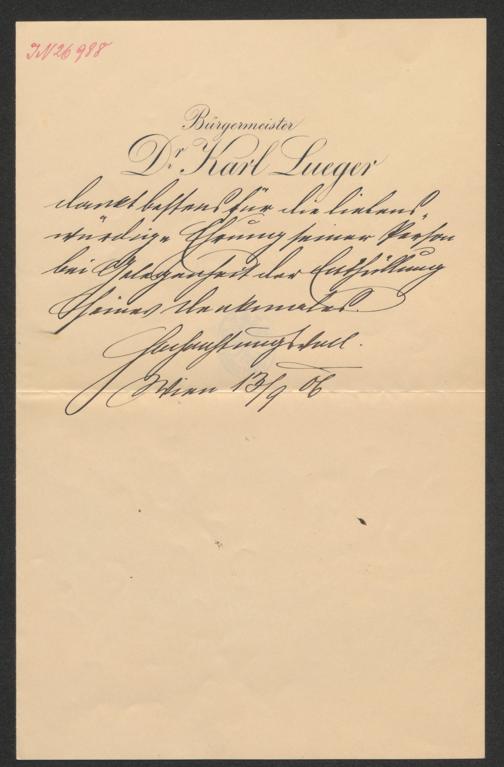 IN 26988
Bürgermeister
Dr. Karl Lueger
dankt bestens für die liebens-
würdige Ehrung seiner Person
bei Gelegenheit der Enthüllung
seines Denkmales.
Hochachtungsvoll.
Wien 13/9 06